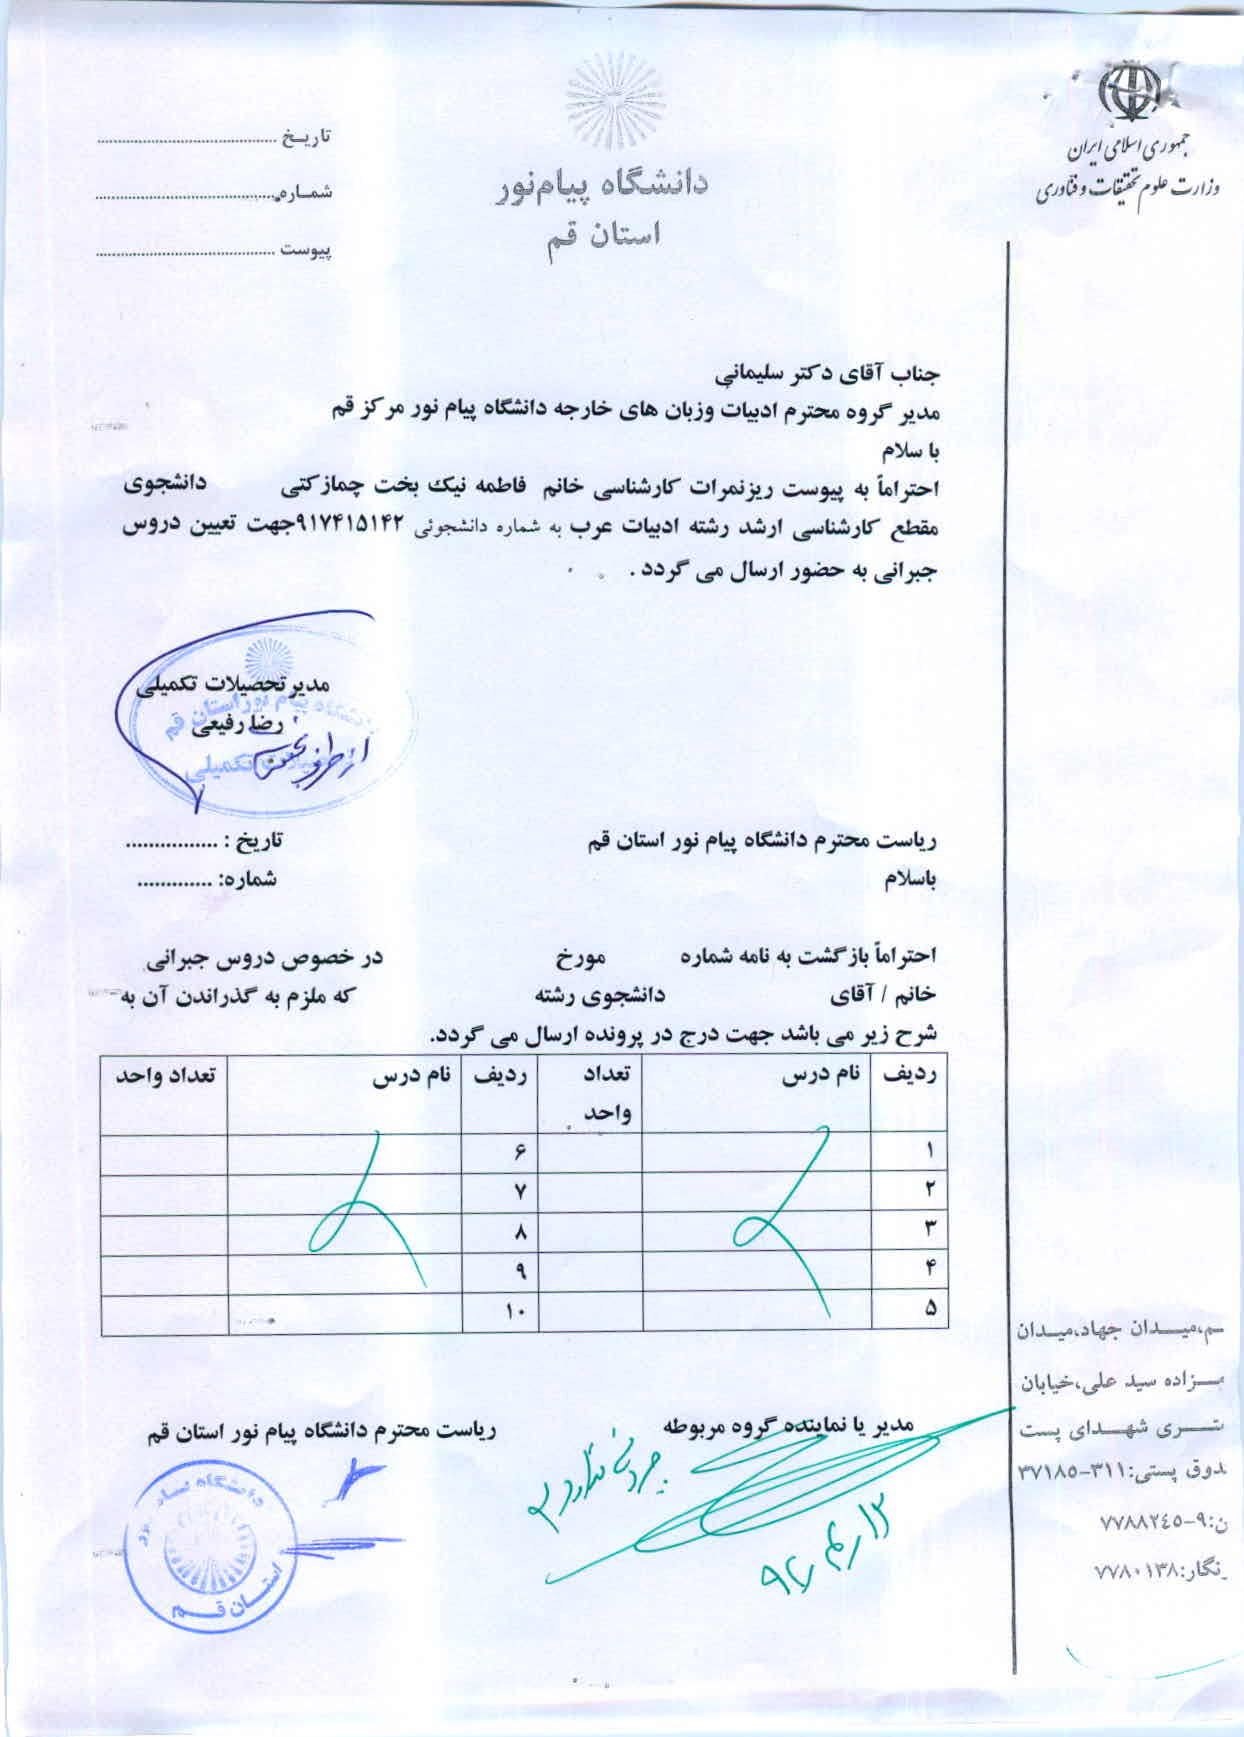 جمهوری اسلامی ایران
وزارت علوم تحقیقات و فناوری
دانشگاه پیام‌نور
استان قم
تاریخ ............
شماره ............
پیوست ............
جناب آقای دکتر سلیمانی
مدیر گروه محترم ادبیات وزبان های خارجه دانشگاه پیام نور مرکز قم
با سلام
احتراماً به پیوست ریزنمرات کارشناسی خانم فاطمه نیک بخت چمازکتی دانشجوی
مقطع کارشناسی ارشد رشته ادبیات عرب به شماره دانشجوئی ۹۱۷۴۱۵۱۴۲جهت تعیین دروس
جبرانی به حضور ارسال می گردد .
مدیر تحصیلات تکمیلی
رضا رفیعی
دانشگاه پیام نور استان قم
تحصیلات تکمیلی
از طرف
ریاست محترم دانشگاه پیام نور استان قم
تاریخ : ................
باسلام
شماره: .............
احتراماً بازگشت به نامه شماره مورخ در خصوص دروس جبرانی
خانم / آقای دانشجوی رشته که ملزم به گذراندن آن به
شرح زیر می باشد جهت درج در پرونده ارسال می گردد.
ردیف نام درس تعداد واحد ردیف نام درس تعداد واحد
۱ ۶
۲ ۷
۳ ۸
۴ ۹
۵ ۱۰
مدیر یا نماینده گروه مربوطه
ریاست محترم دانشگاه پیام نور استان قم
جبرانی ندارد
استان قم
ـم،میـدان جهاد،میـدان
ـزاده سید علی،خیابان
ـتـری شهـدای پست
ـدوق پستی:۳۱۱-۳۷۱۸۵
ن:۹-۷۷۸۸۲۴۵
ـنگار:۷۷۸۰۱۳۸